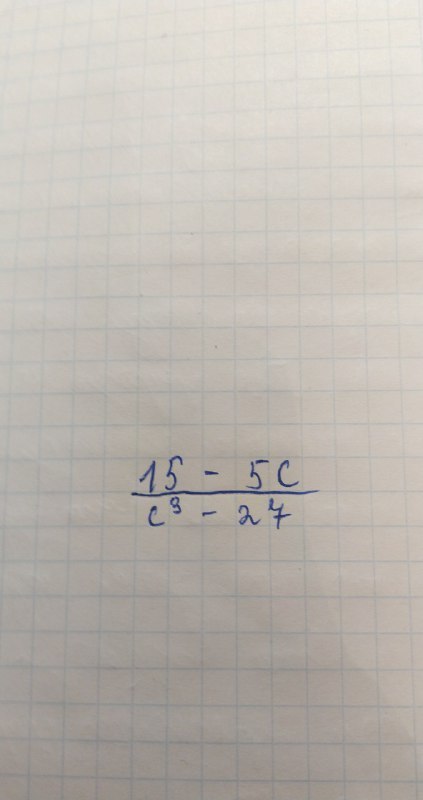 15 - 5c
c³ - 27